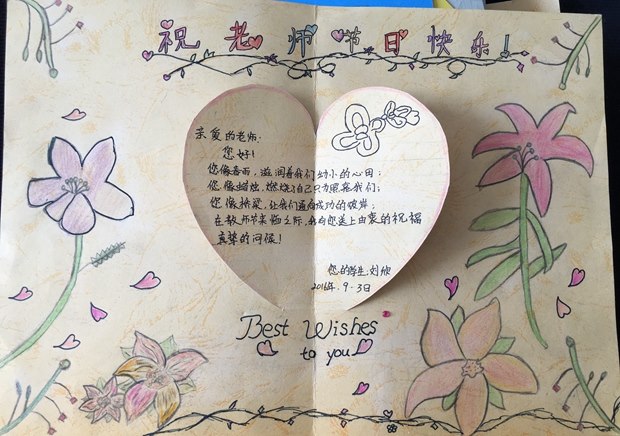 祝老师节日快乐!
亲爱的老师:
您好!
您像春雨,滋润着我们幼小的心田;
您像蜡烛,燃烧自己只为照亮我们;
您像桥梁,让我们通向成功的彼岸;
在教师节来临之际,我向您送上由衷的祝福
真挚的问候!
您的学生:刘欣
2016年.9.3日
Best Wishes
to you